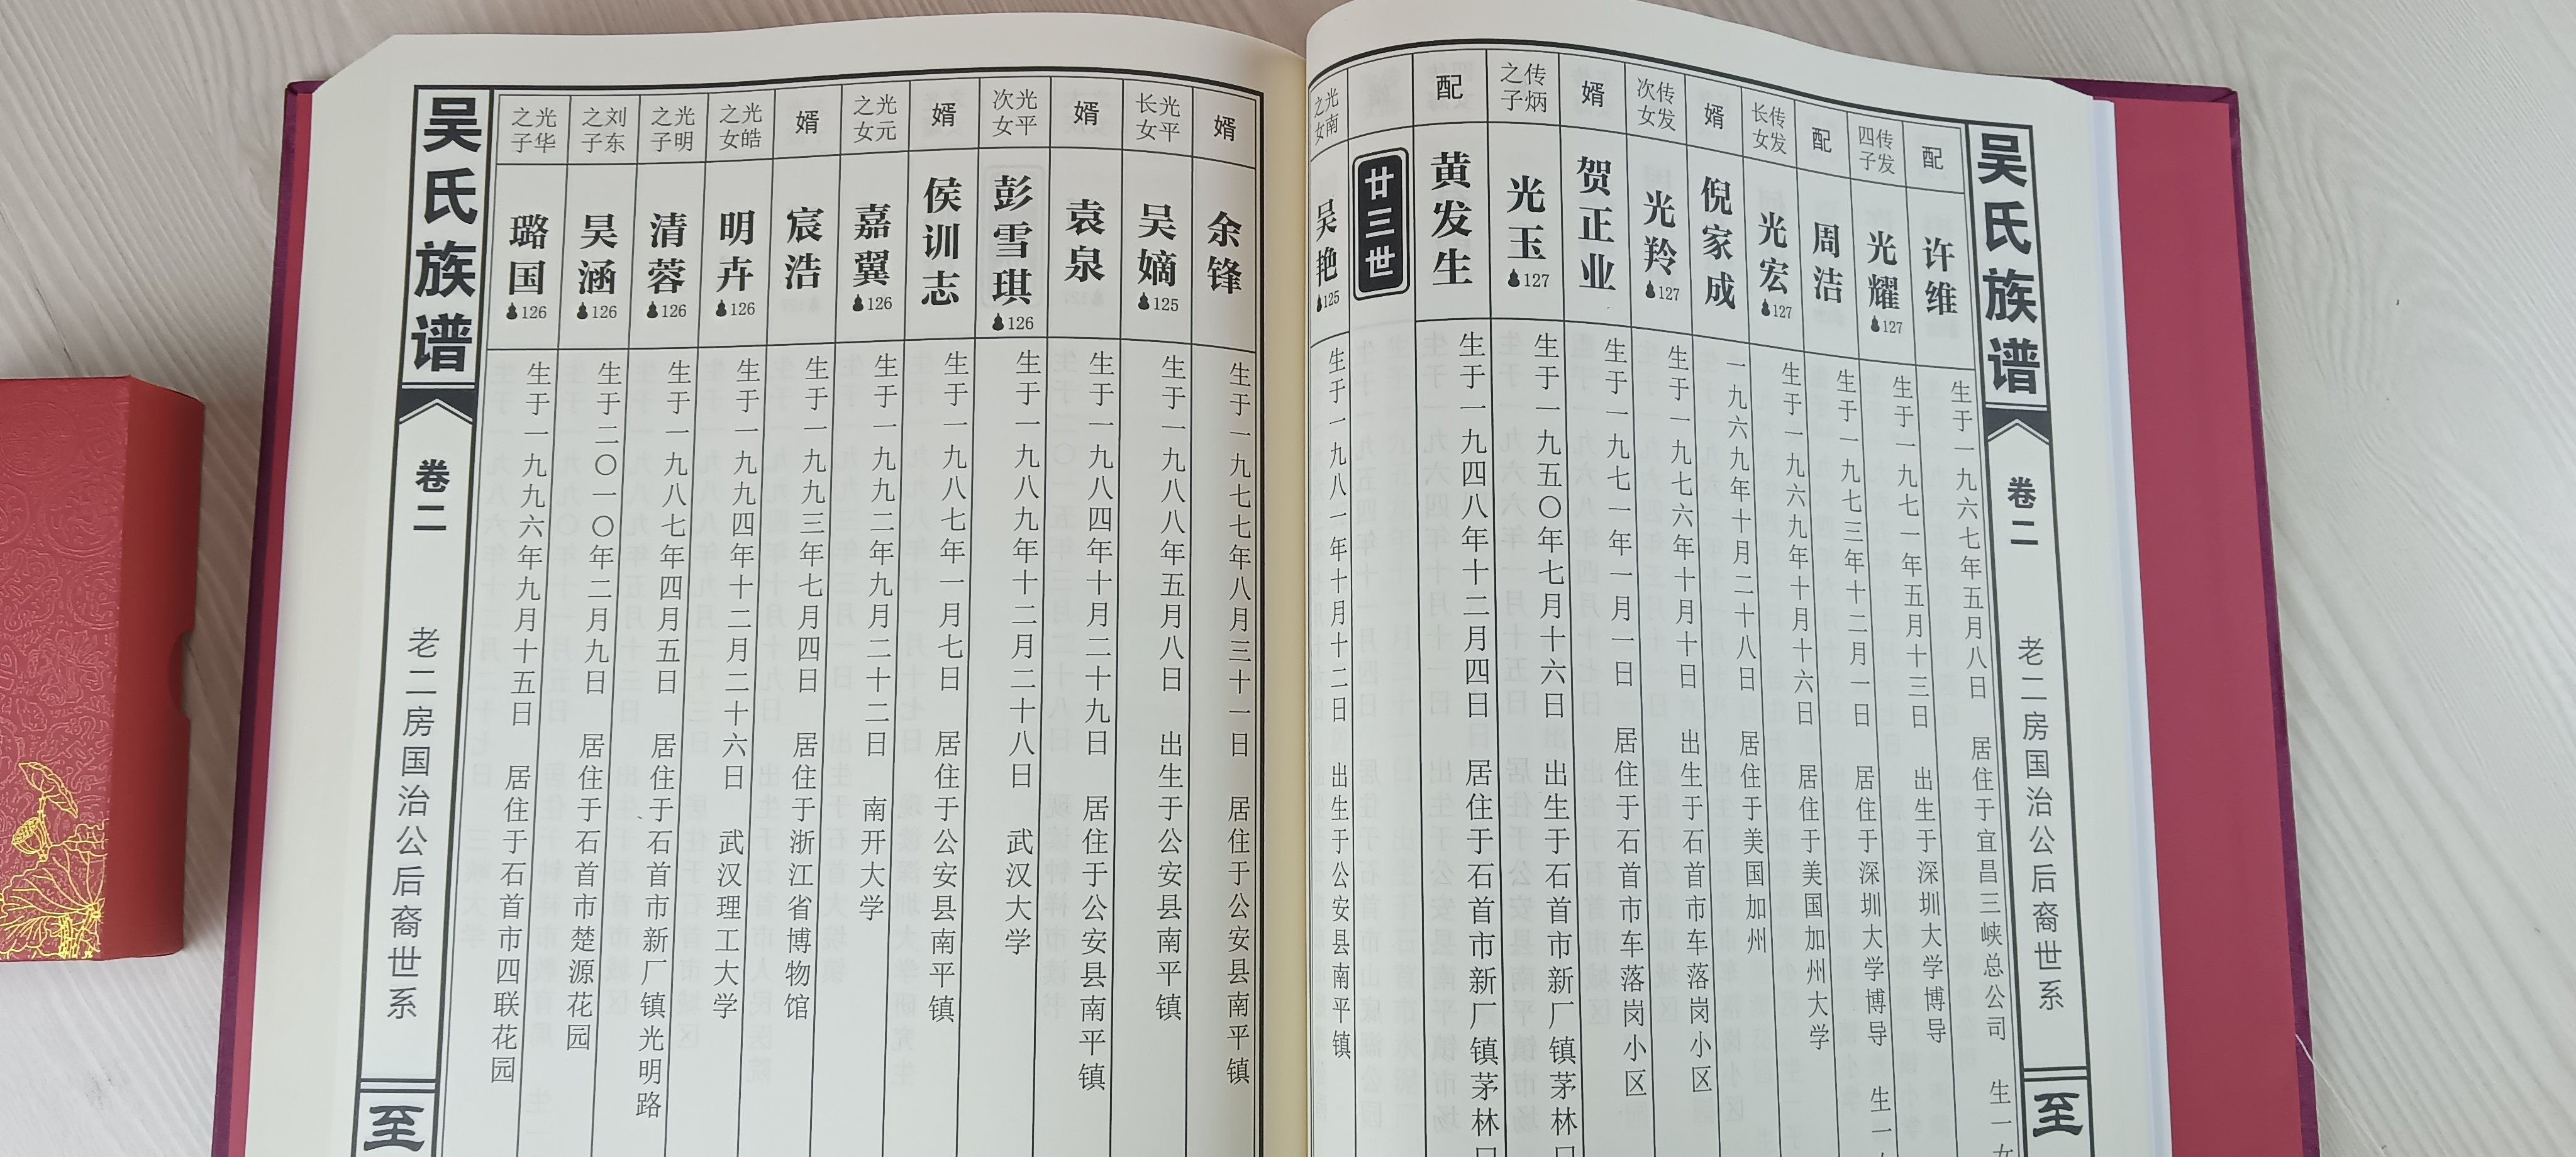 吴氏族谱
卷二
老二房国治公后裔世系
至
配
许维
生于一九六七年五月八日 居住于宜昌三峡总公司 生一女
传发四子
光耀
127
生于一九七一年五月十三日 出生于深圳大学博导
配
周洁
生于一九七三年十二月一日 居住于深圳大学博导 生一
传发长女
光宏
127
生于一九六九年十月十六日 居住于美国加州大学
婿
倪家成
一九六九年十月二十八日 居住于美国加州
传发次女
光羚
127
生于一九七六年十月十日 出生于石首市车落岗小区
婿
贺正业
生于一九七一年一月一日 居住于石首市车落岗小区
传炳之子
光玉
127
生于一九五〇年七月十六日 出生于石首市新厂镇茅林口
配
黄发生
生于一九四八年十二月四日 居住于石首市新厂镇茅林口
廿三世
光南之女
吴艳
125
生于一九八一年十月十二日 出生于公安县南平镇
婿
余锋
生于一九七七年八月三十一日 居住于公安县南平镇
光平长女
吴嫡
125
生于一九八八年五月八日 出生于公安县南平镇
婿
袁泉
生于一九八四年十月二十九日 居住于公安县南平镇
光平次女
彭雪琪
126
生于一九八九年十二月二十八日 武汉大学
婿
侯训志
生于一九八七年一月七日 居住于公安县南平镇
光元之女
嘉翼
126
生于一九九二年九月二十二日 南开大学
婿
宸浩
生于一九九三年七月四日 居住于浙江省博物馆
光皓之女
明卉
126
生于一九九四年十二月二十六日 武汉理工大学
光明之子
清蓉
126
生于一九八七年四月五日 居住于石首市新厂镇光明路
刘东之子
昊涵
126
生于二〇一〇年二月九日 居住于石首市楚源花园
光华之子
璐国
126
生于一九九六年九月十五日 居住于石首市四联花园
吴氏族谱
卷二
老二房国治公后裔世系
至